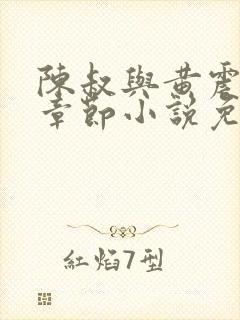 陳叔與黃震
章節小說免
紅焰7型